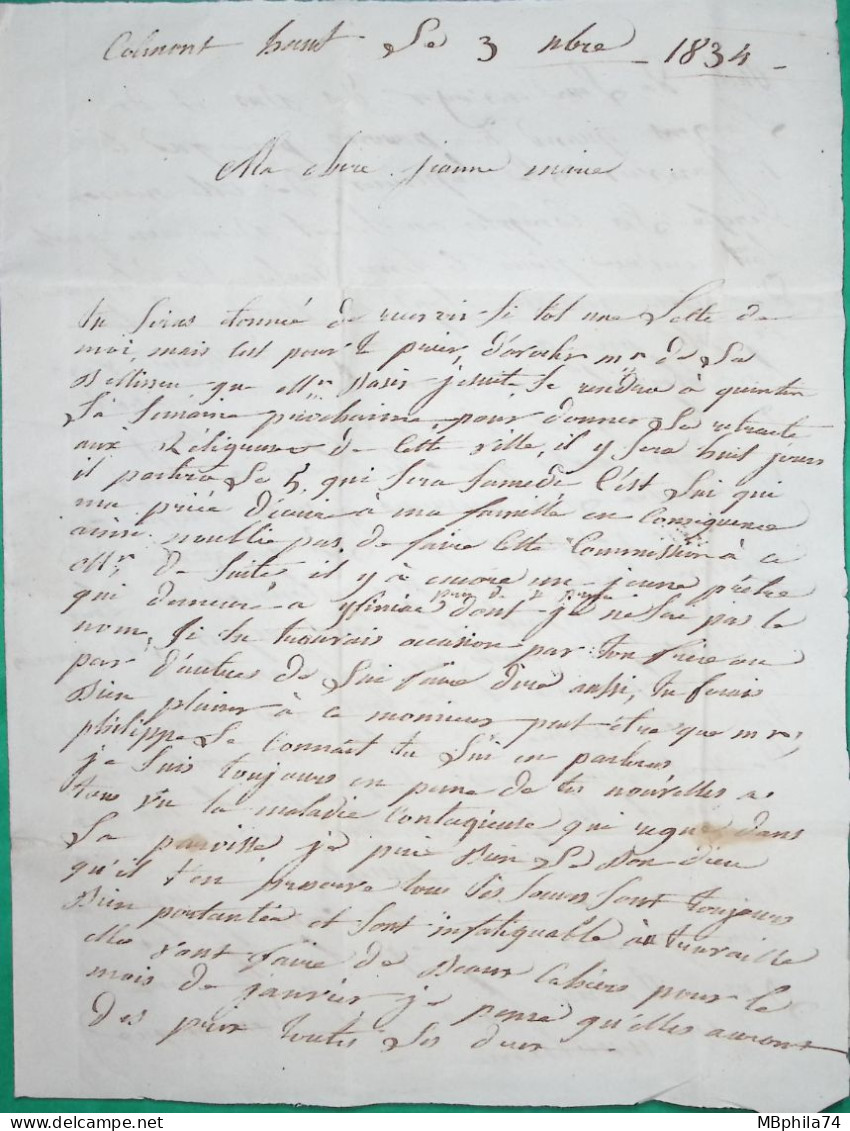 haut Le 3 nbre - 1834 -
Ma chere jeanne marie
Tu seras etonné de recevoir si tot une Lettre de
moi, mais cest pour te prier, davertir mr de La
que Mr jesuite se rendra à quintin
La semaine prochaine, pour donner La retraite
aux Religieuses de cette ville, il y sera huit jours
il partira Le 5 qui sera samedi C'est Lui qui
ma priée d'écrire à ma famille en Consequence
ainsi noublie pas de faire cette Commission à ce
Mr de suite, il y à encore un jeune prêtre
qui demeure a yfiniac dont je ne sai pas le
nom, si tu trouvais occasion par ton frere ou
par d'autres de Lui faire dire aussi, tu ferais
Bien plaisir à ce monsieur peut être que mr
philippe Le Connait tu Lui en parleras
je suis toujours en peine de tes nouvelles a
tous vu la maladie Contagieuse qui regne dans
La paroisse je prie Bien Le Bon dieu
qu'il t'en preserve tous Les sœurs sont toujours
Bien portantes et sont infatiguable à travaille
elle vont faire de Beaux Cahiers pour le
mois de janvier je pense qu'elles auront
des prix toutes Les deux
MBphila74